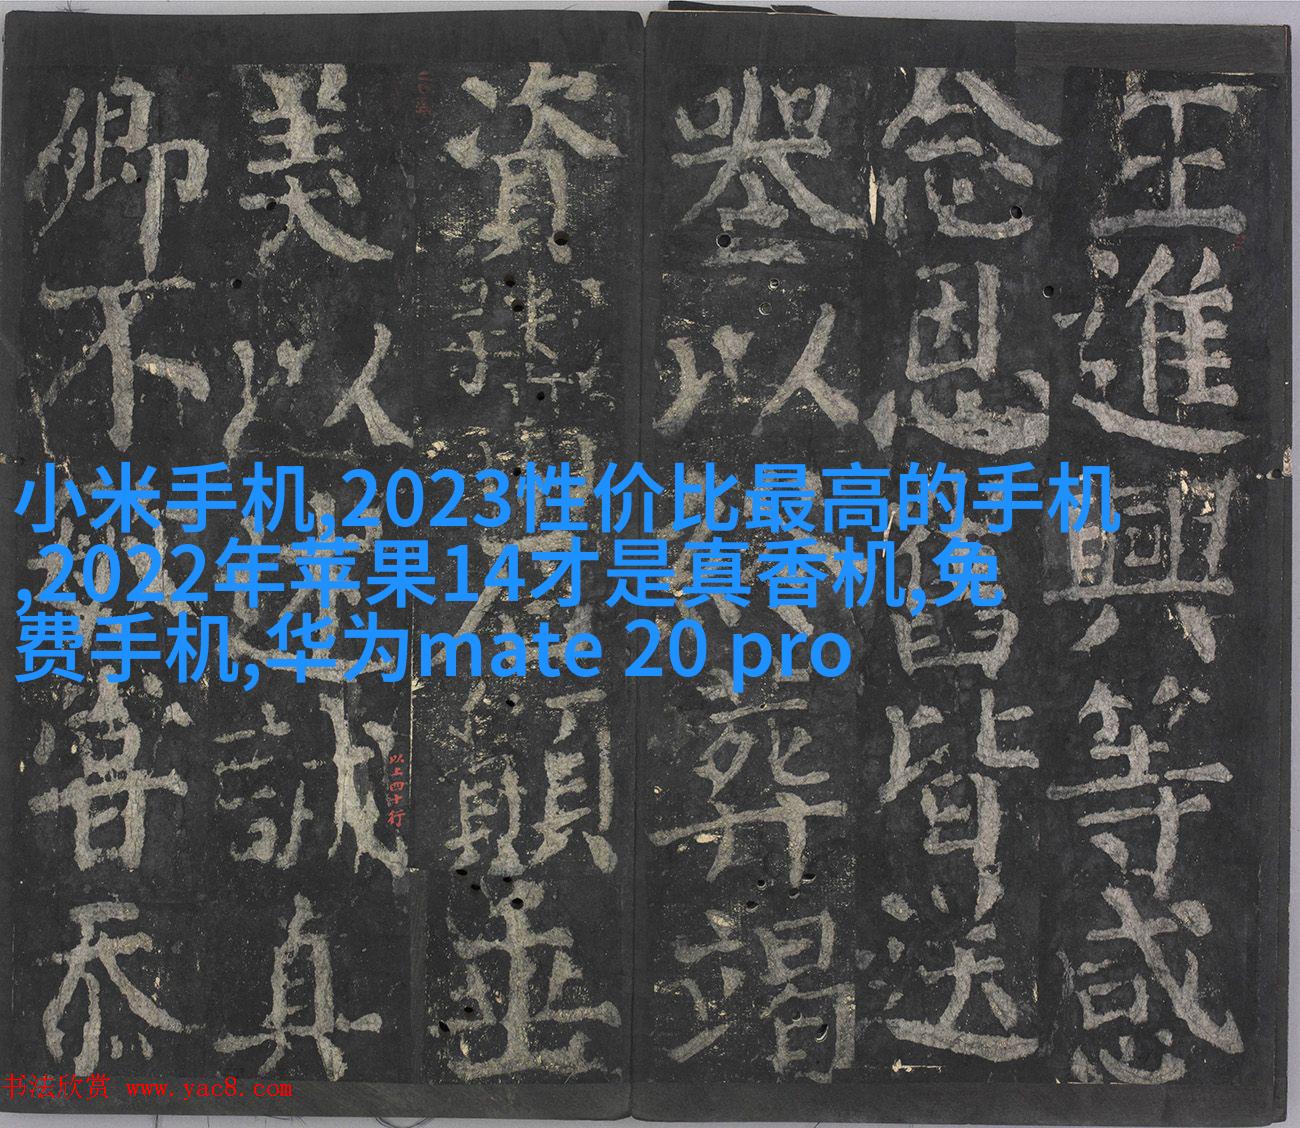 王進興等感
念恩舊皆送
以葬竭
資並
美以誠真
卿不忝
以上四十行
小米手机,2023性价比最高的手机
,2022年苹果14才是真香机,免
费手机,华为mate 20 pro
书法欣赏 www.yac8.com